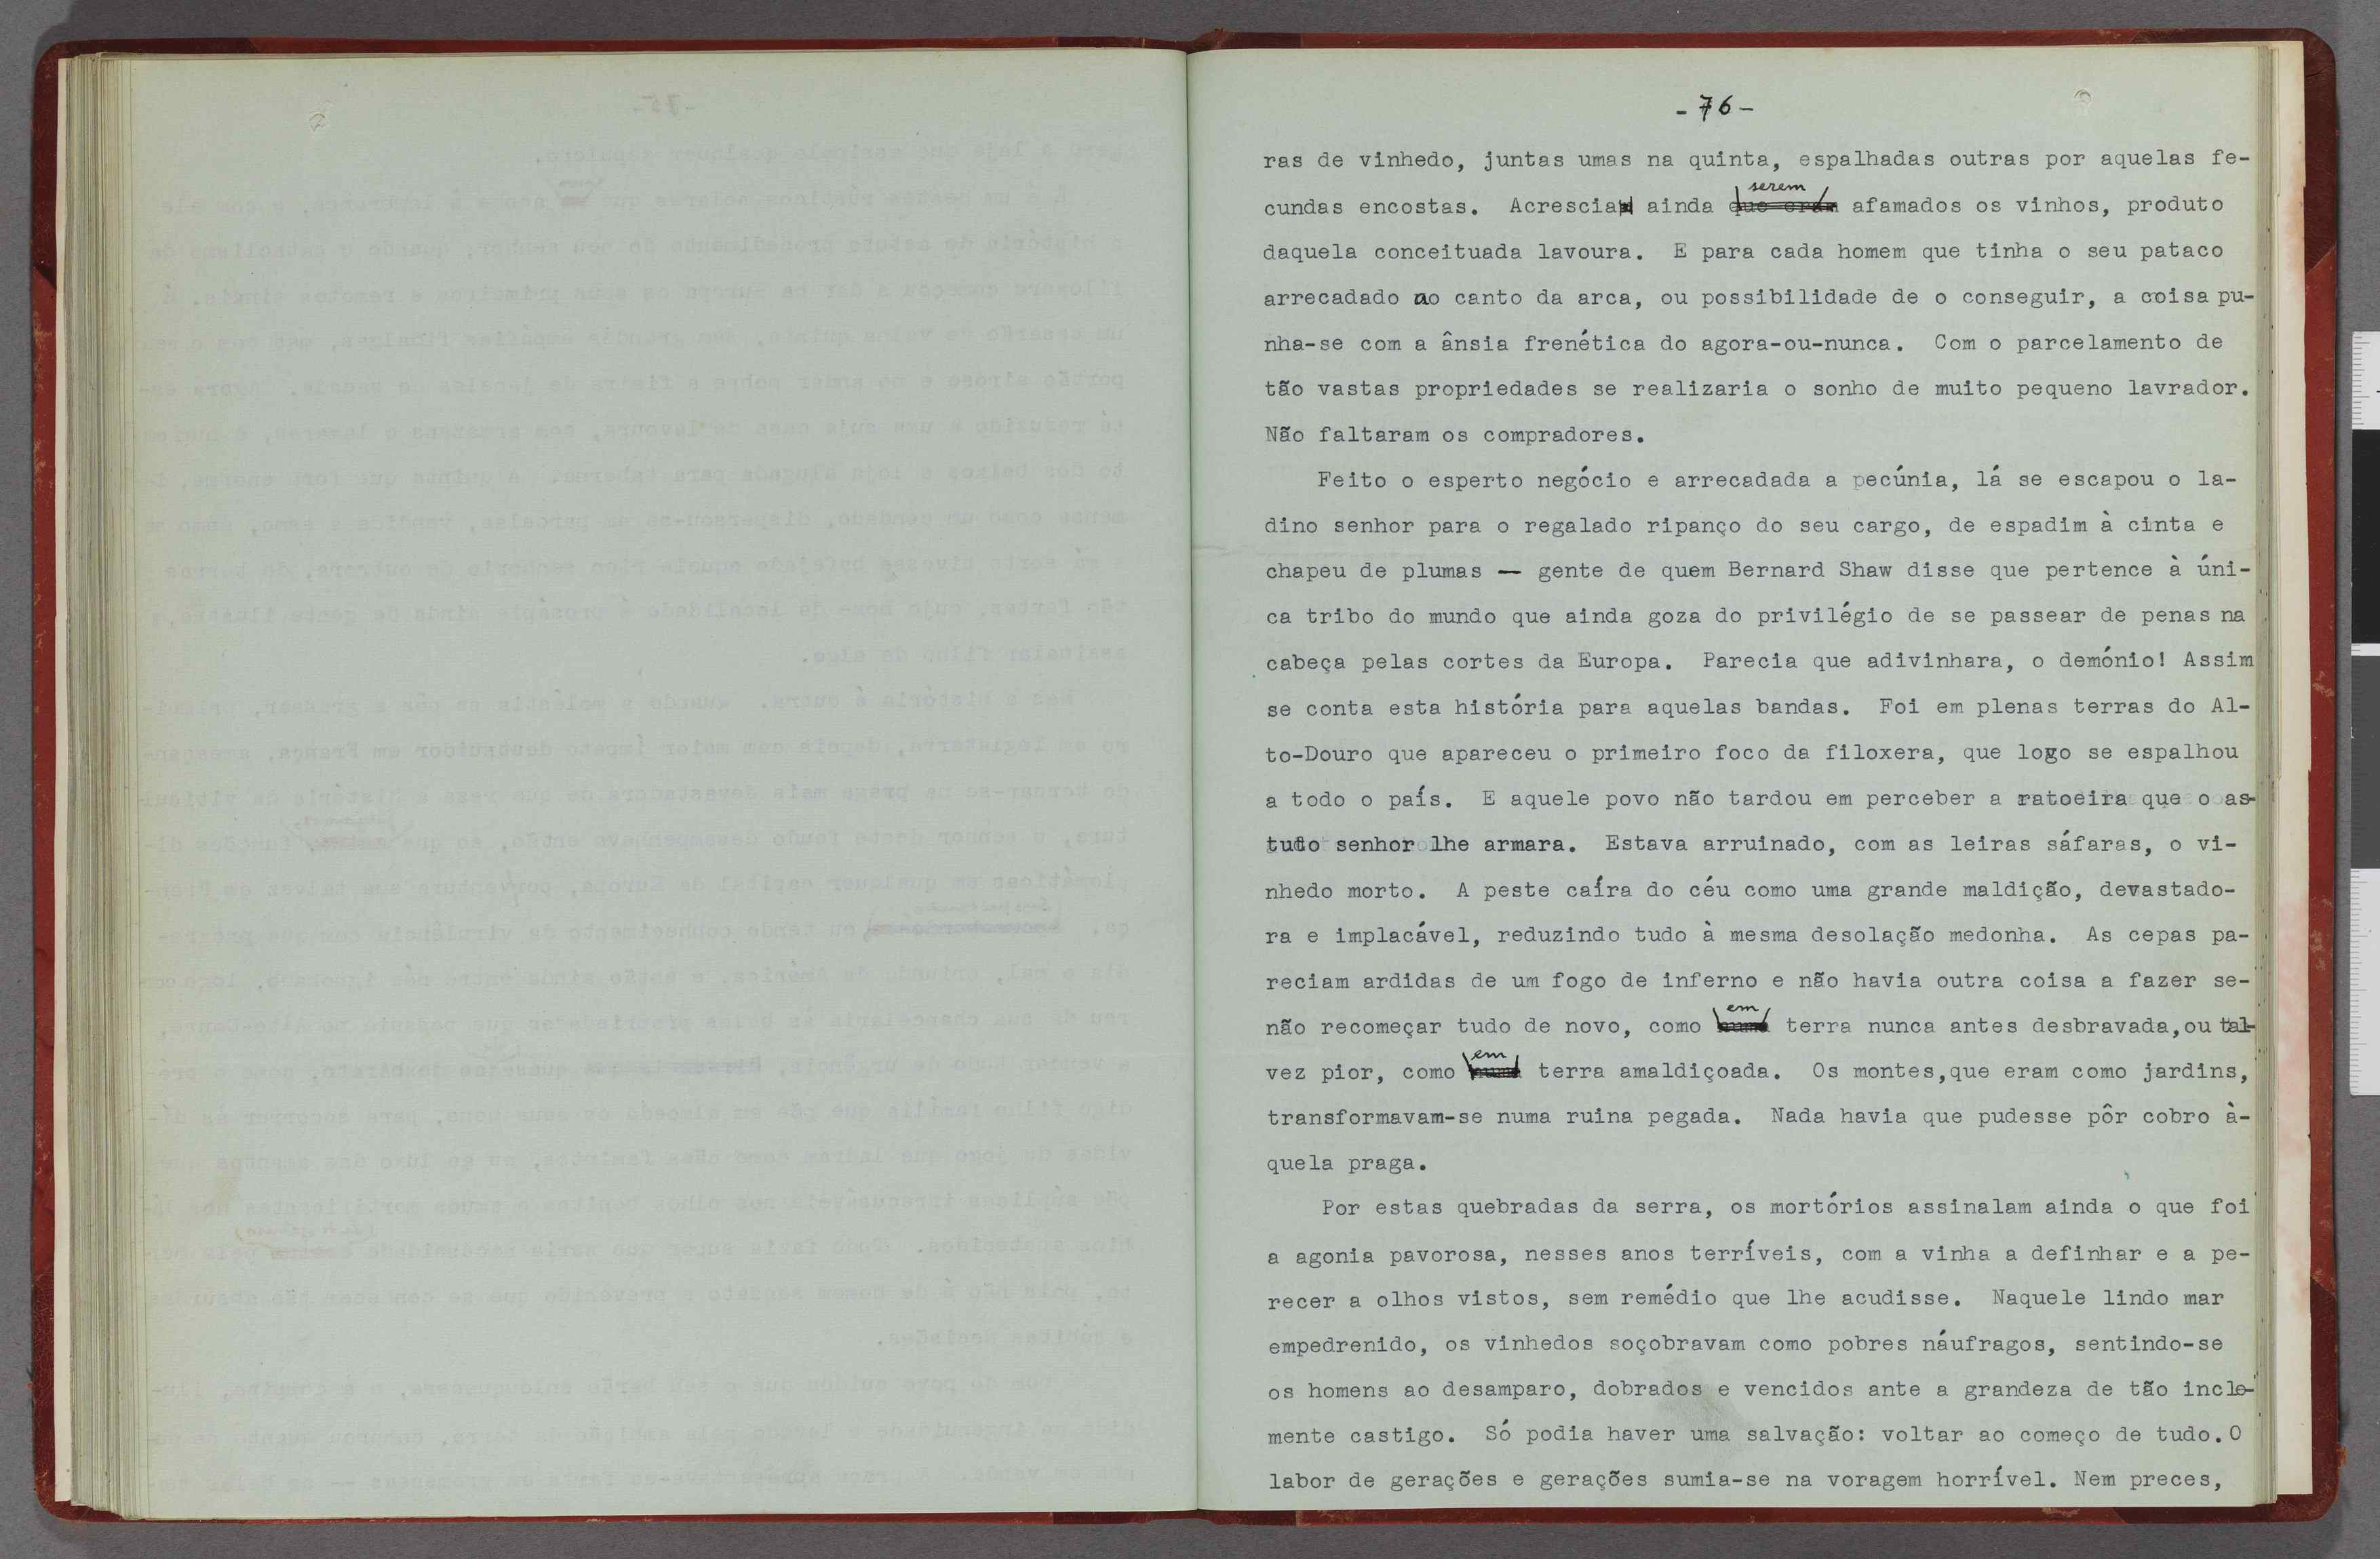 - 76 -
ras de vinhedo, juntas umas na quinta, espalhadas outras por aquelas fe-
serem
cundas encostas. Acrescia ainda que eram afamados os vinhos, produto
daquela conceituada lavoura. E para cada homem que tinha o seu pataco
arrecadado ao canto da arca, ou possibilidade de o conseguir, a coisa pu-
nha-se com a ânsia frenética do agora-ou-nunca. Com o parcelamento de
tão vastas propriedades se realizaria o sonho de muito pequeno lavrador.
Não faltaram os compradores.
Feito o esperto negócio e arrecadada a pecúnia, lá se escapou o la-
dino senhor para o regalado ripanço do seu cargo, de espadim à cinta e
chapeu de plumas — gente de quem Bernard Shaw disse que pertence à úni-
ca tribo do mundo que ainda goza do privilégio de se passear de penas na
cabeça pelas cortes da Europa. Parecia que adivinhara, o demónio! Assim
se conta esta história para aquelas bandas. Foi em plenas terras do Al-
to-Douro que apareceu o primeiro foco da filoxera, que logo se espalhou
a todo o país. E aquele povo não tardou em perceber a ratoeira que o as-
tuto senhor lhe armara. Estava arruinado, com as leiras sáfaras, o vi-
nhedo morto. A peste caíra do céu como uma grande maldição, devastado-
ra e implacável, reduzindo tudo à mesma desolação medonha. As cepas pa-
reciam ardidas de um fogo de inferno e não havia outra coisa a fazer se-
em
não recomeçar tudo de novo, como numa terra nunca antes desbravada, ou tal-
em
vez pior, como numa terra amaldiçoada. Os montes, que eram como jardins,
transformavam-se numa ruina pegada. Nada havia que pudesse pôr cobro à-
quela praga.
Por estas quebradas da serra, os mortórios assinalam ainda o que foi
a agonia pavorosa, nesses anos terríveis, com a vinha a definhar e a pe-
recer a olhos vistos, sem remédio que lhe acudisse. Naquele lindo mar
empedrenido, os vinhedos soçobravam como pobres náufragos, sentindo-se
os homens ao desamparo, dobrados e vencidos ante a grandeza de tão incle-
mente castigo. Só podia haver uma salvação: voltar ao começo de tudo. O
labor de gerações e gerações sumia-se na voragem horrível. Nem preces,